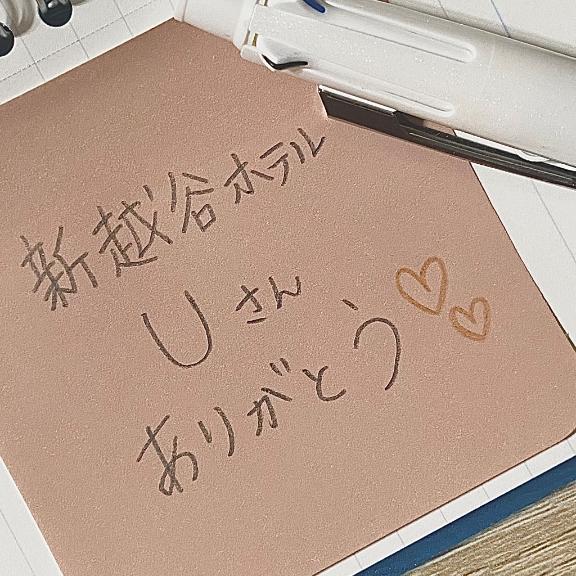 新越谷ホテル
Uさん
ありがとう♡♡